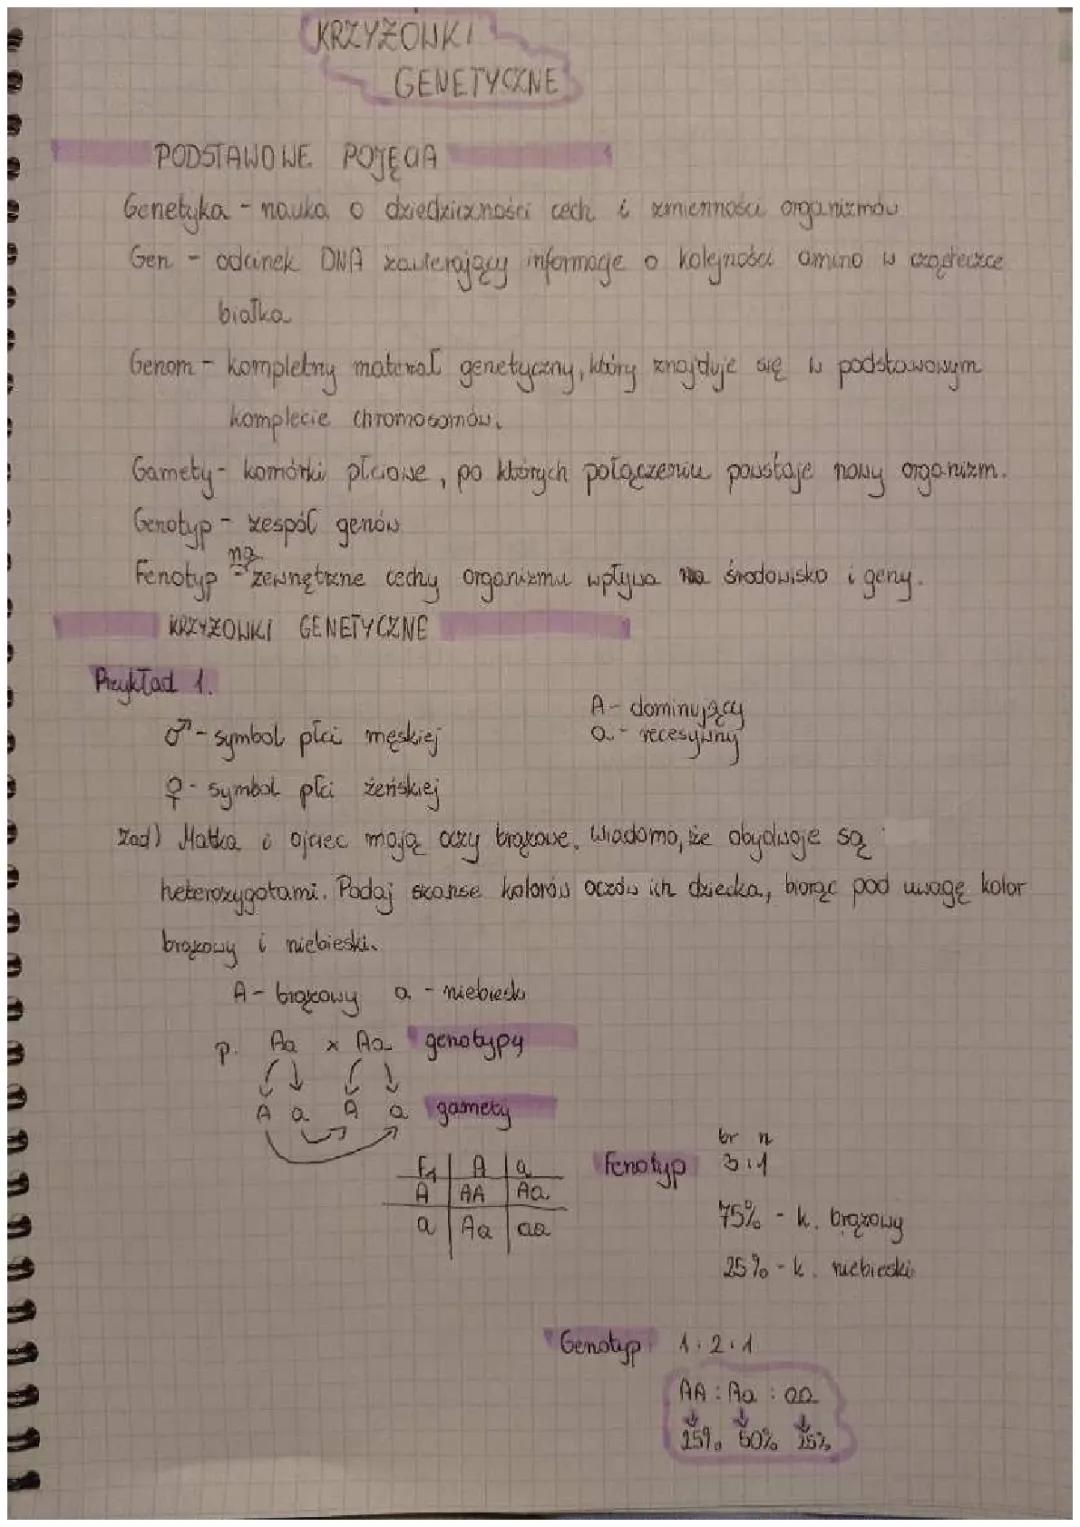 KRZYŻOWKI
GENETYCZNE
PODSTAWOWE POJĘCIA
Genetyka - nauka o dziedziczności cech i zmienności organizmów
Gen - odcinek DNA zawierający informacje o kolejności amino w cząsteczce
białka
Genom - kompletny materiał genetyczny, który znajduje się w podstawowym
komplecie chromosomów.
Gamety - komórki płciowe, po których połączeniu powstaje nowy organizm.
Genotyp - zespół genów
na
Fenotyp - zewnętrzne cechy organizmu wpływa środowisko i geny.
KRZYŻOWKI GENETYCZNE
Przykład 1.
A - dominujący
♂ - symbol płci męskiej
a - recesywny
♀ - symbol płci żeńskiej
Zad) Matka i ojciec mają oczy brązowe. Wiadomo, że obydwoje są
heterozygotami. Podaj szanse kolorów oczów ich dziecka, biorąc pod uwagę kolor
brązowy i niebieski.
A - brązowy a - niebieski
p. Aa x Aa genotypy
A a A a gamety
br n
F1 A a Fenotyp 3:1
A AA Aa
a Aa aa
75% - k. brązowy
25% - k. niebieski
Genotyp 1:2:1
AA : Aa : aa
25% 50% 25%